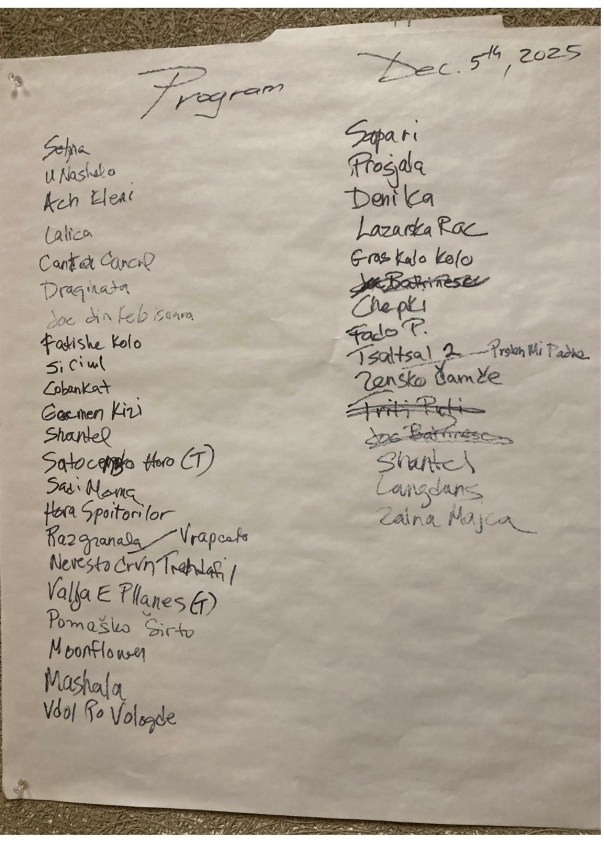 Program
Dec. 5th, 2025
Setnja
U Nashelo
Ach Eleni
Lalica
Draginata
Joc din
Fatishe Kolo
Cobankat
Gesmen Kizi
Shantel
Horo (T)
Sadi Moma
Hora Spoitorilor
Razgranala Vrapcato
Nevesto Crvn Trendafil
Vallja E Pllanes (T)
Pomaško Širto
Moonflower
Mashala
Vdol Po Vologde
Sapari
Prosjala
Denika
Lazarska Rac
Gros Kalo Kolo
Joc Batrinesc
Chepki
Fado P.
Tsaltsal 2
Zensko Čamče
Triti Puti
Joc Batrinesc
Shantel
Langdans
Zalna Majca